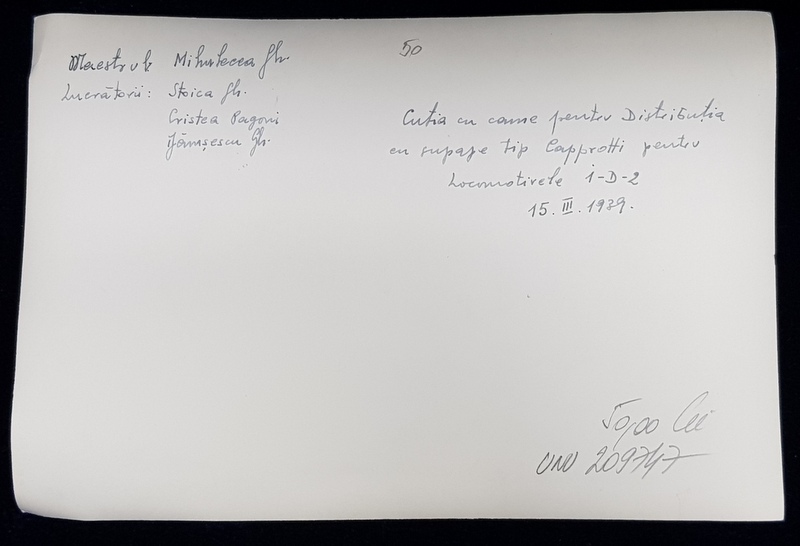 50
Maestrul Mihulecea Gh.
Lucrătorii: Stoica Gh.
Cristea Pagoni
Gh.
Cutia cu came pentru Distribuția
cu supape tip Capprotti pentru
Locomotivele 1-D-2
15. III. 1939.
50,00 Lei
209747